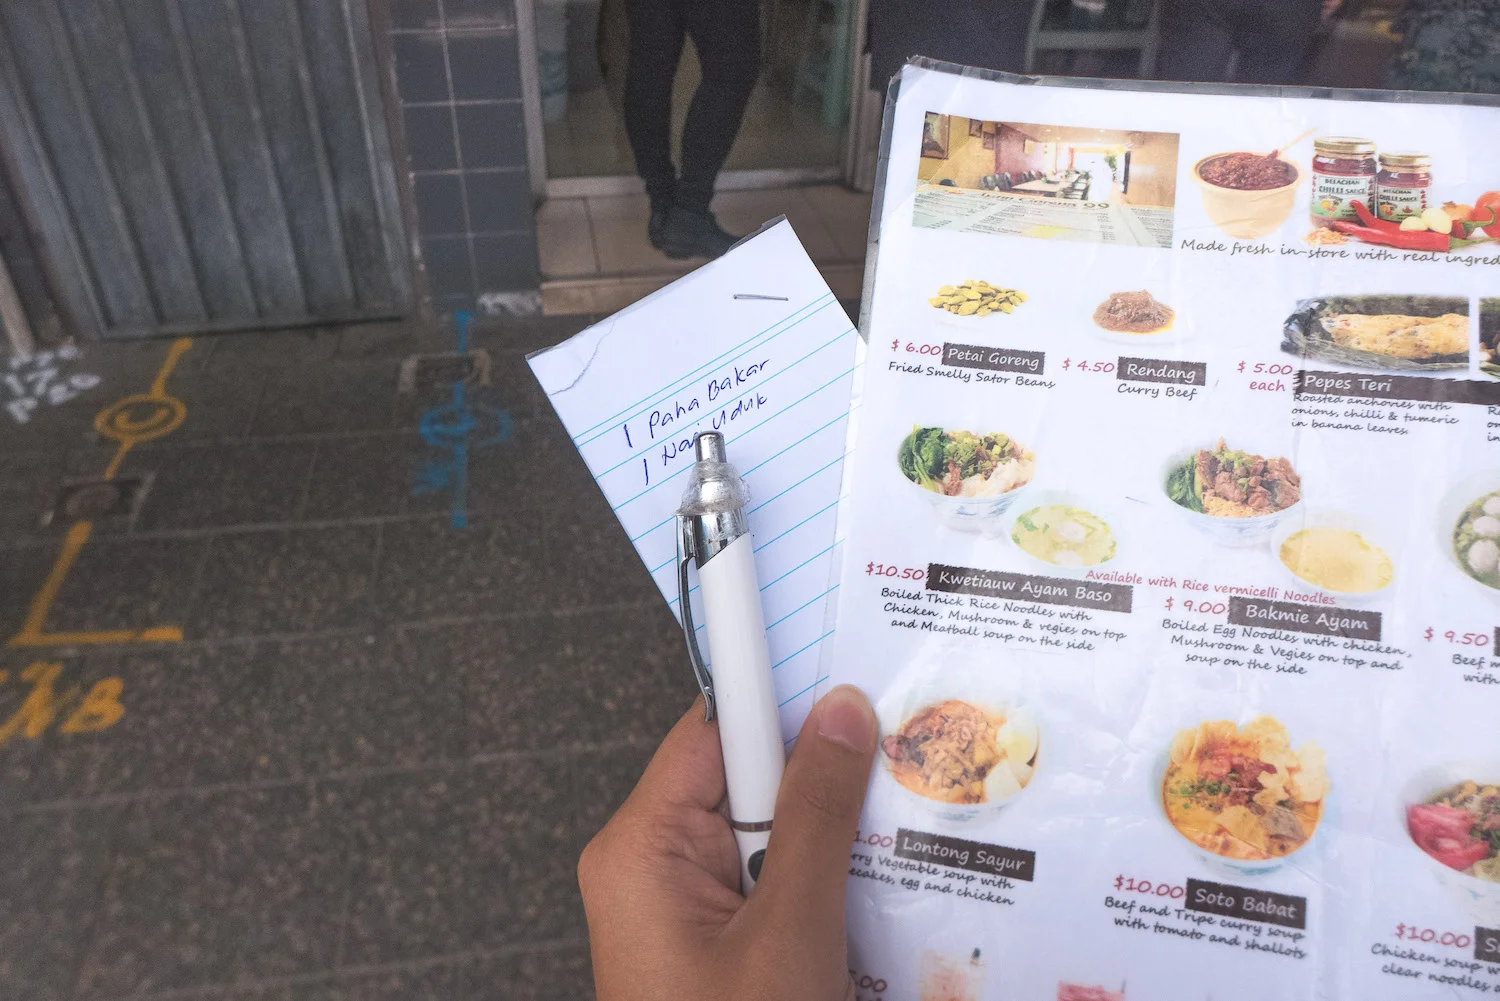 1 Paha Bakar
1 Nasi Uduk
BELACHAN
CHILLI SAUCE
CHILLI SAUCE
Made fresh in-store with real
$ 6.00 Petai Goreng
Fried Smelly Sator Beans
$ 4.50 Rendang
Curry Beef
$ 5.00 each Pepes Teri
Roasted anchovies with
onions, chilli & tumeric
in banana leaves.
$10.50 Kwetiauw Ayam Baso
Boiled Thick Rice Noodles with
Chicken, Mushroom & vegies on top
and Meatball soup on the side
Available with Rice vermicelli Noodles
$ 9.00 Bakmie Ayam
Boiled Egg Noodles with chicken,
Mushroom & Vegies on top and
soup on the side
$ 9.50
Beef
with
1.00 Lontong Sayur
Vegetable soup with
egg and chicken
$10.00 Soto Babat
Beef and Tripe curry soup
with tomato and shallots
$10.00
Chicken soup
clear noodles
.00
17